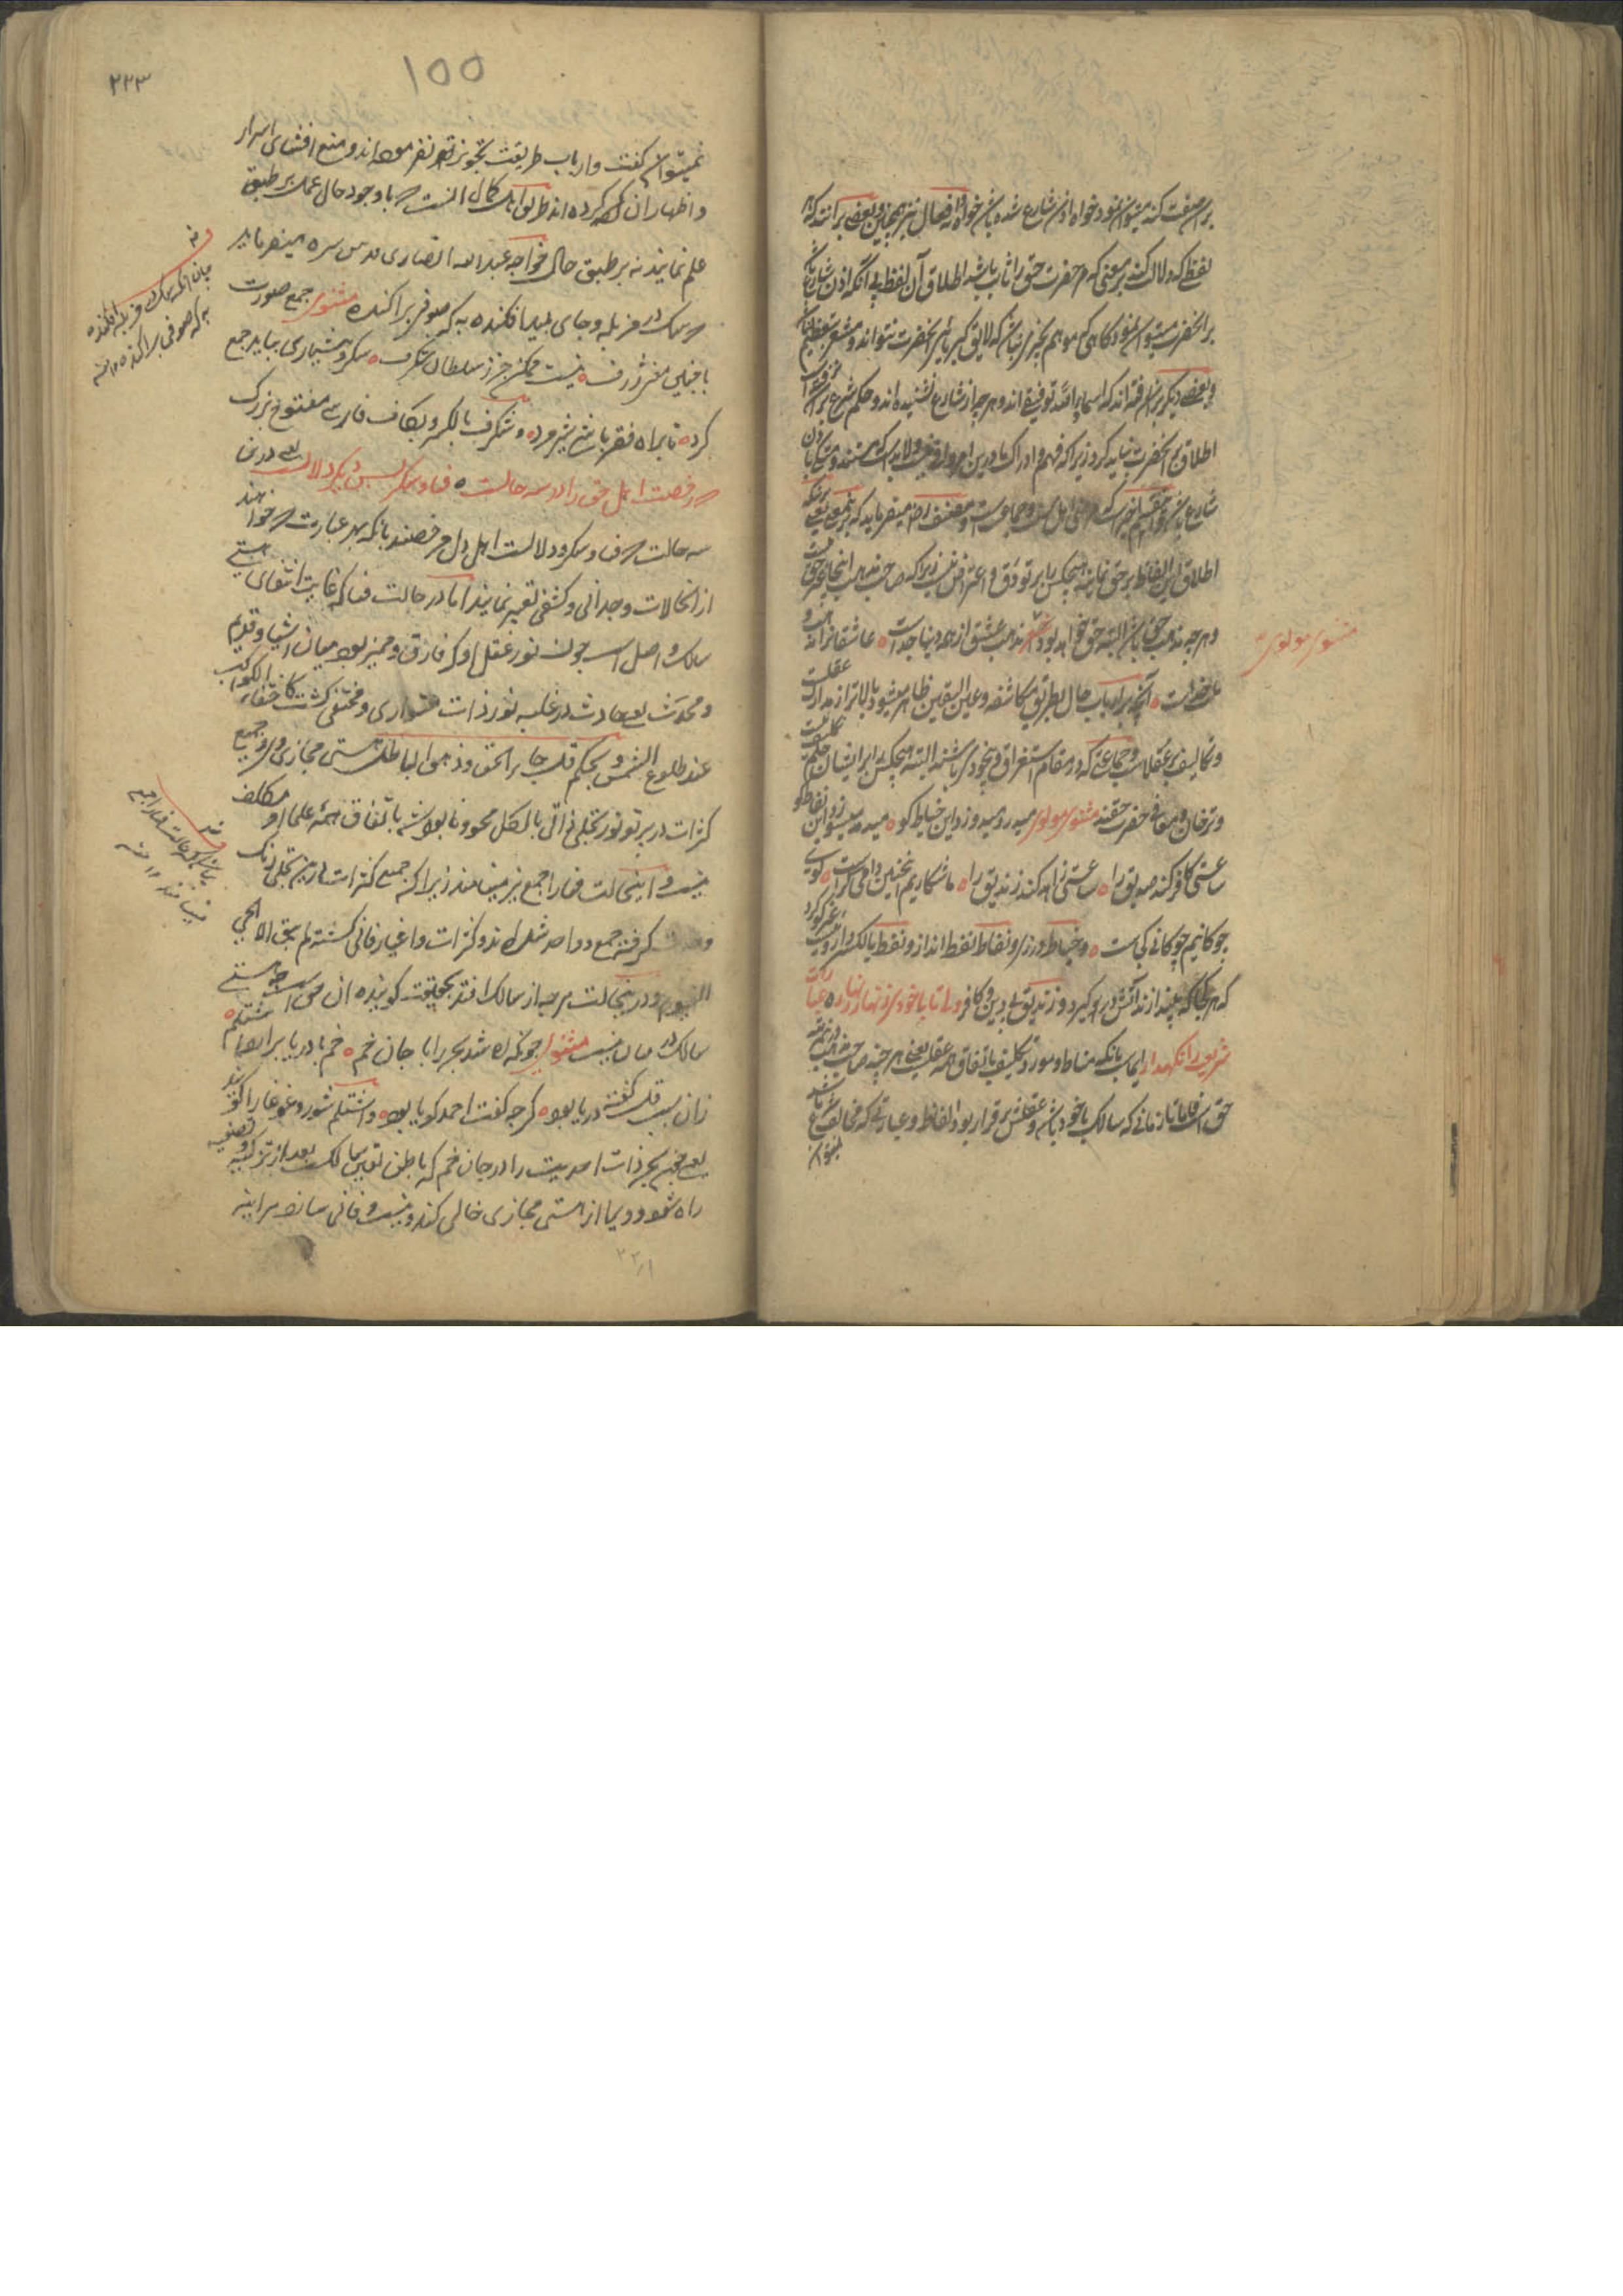 بران صفت کند میتوان نمود خواه اذن شارع شده باشد خواه نه و افعال نیز همچنین و بعضی برانند که هر
لفظ که دلالت کند بر معنی که مر حضرت حق را ثابت باشد اطلاق آن لفظ بی آنکه اذن شارع باشد
بر آنحضرت میتوان نمود گاهی که موهم بچیزی نباشد که لایق کبریای آنحضرت نتواند و مشعر تعظیم باشد
و بعضی دیگر بران رفته اند که اسماء الله توقیفی اند و هر چه از شارع نشنیده اند و حکم شرع
اطلاق بر آنحضرت نباید کرد زیرا که فهم و ادراک ما درین امر وافی نیست ولابد است که مستند باذن
شارع باشد و این مذهب اهل سنت و جماعت است و مصنف رضه میفرماید که
اطلاق این الفاظ بر حق نماید هیچکس را برو دق و اعتراض نیست زیرا که صاحب مذهب اینجا حق است
و هر چه مذهب حق باشد البته حق خواهد بود شعر مذهب عشق از همه دینها جداست عاشقانرا مذهب و
ملت خداست آنچه بر ارباب حال بطریق مکاشفه و عین الیقین ظاهر میشود بالاتر از مدارک عقلست
مثنوی مولوی
و تکالیف بر عقلاست و جماعتی که در مقام استغراق و بیخودی باشند البته هیچکس را بر ایشان حکم تکلیف نیست
و ترخان و معاف حضرت حقند مثنوی مولوی میدرد میدوزد این خیاط کو میدمد میسوزد این نفاط کو
ساعتی کافر کند صدیق را ساعتی زاهد کند زندیق را ما شکاریم اینچنین دامی کراست گوی
چوگانیم چوگانی کجاست و خیاط درزی و نفاط نفط انداز و نفط بالکسر داروییست
که هر جا که بیندازند آتش در و گیرد و زندیق بی دین و کافر ولی تا با خودی زنهار زنهار عبارات
شریعت را نگهدار ایماست بانکه مناط و مورد تکلیف باتفاق همه عقل است یعنی هر چند صاحب مذهب
حق است فاما تا زمانی که سالک با خود باشد و عقلش برقرار بود الفاظ و عباراتی که مخالف شرع باشد
نمیتوان
۲۳۳
100
نمیتوان گفت و ارباب طریقت تجویز نفرموده اند و منع افشای اسرار
و اظهار آن کرده اند طریق اهل کمال آنست که باوجود حال عمل بر طبق
علم نمایند نه بر طبق حال خواجه عبدالله انصاری قدس سره میفرماید
که سگ در مزبله و جای پلید افکنده به که صوفی پراکنده مثنوی جمع صورت
با چنین معنی ژرف نیست ممکن جز ز سلطان شگرف سکر و هشیاری بباید جمع
کرد تا براه فقر باشی شیر مرد و شگرف بالکسر و بکاف فارسی مفتوح بزرگ
که رخصت اهل حق را در سه حالت فنا و سکر پس دیگر دلالت یعنی درین
سه حالت که فنا و سکر و دلالت اهل دل مرخصند بانکه بهر عبارت که خواهند
از انحالات وجدانی و کشفی تعبیر نمایند اما در حالت فنا که غایت انتفای هستی
سالک و اصل است چون نور عقل او که فارق و ممیز بود میان اشیا و قدیم
و محدث یعنی حادث در غلبه نور ذات متواری و مختفی گشت کاختفاء الکواکب
عند طلوع الشمس و بحکم قل جاء الحق و زهق الباطل هستی مجازی و جمیع
کثرات در پرتو نور تجلی ذاتی بالکل محو و نابود شد باتفاق همه علما او مکلف
نیست و اینحالت فنا را جمع نیز مینامند زیرا که جمیع کثرات درین تجلی رنگ
وحدت گرفته جمع و واحد شده اند و کثرات و اغیار فانی گشته لم یبق الا الحی
القیوم و درینحالت هر چه از سالک افتد بحقیقت گوینده آن حق است چه هستی
سالک در میان نیست مثنوی چونکه ره شد بحر را با جان خم خم با دریا برارد اشتلم
زان سبب قل گفته دریا بود گرچه گفت احمد گویا بود و اشتلم شور و غوغا را گویند
یعنی چون بحر ذات احدیت را در جان خم که باطن تعین سالکست بعد از تزکیه و تصفیه
راه شود و ویرا از هستی مجازی خالی کند و نیست و فانی سازد هر آینه
به که صوفی پراکنده ۱۲ منه
۲۲۱